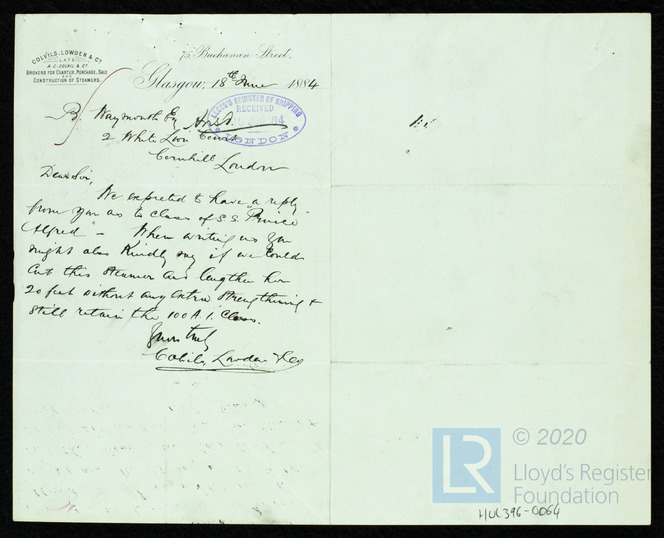 COLVILS, LOWDEN & Co.
LATE
A. C. COLVIL & Co.
BROKERS FOR CHARTER, PURCHASE, SALE
AND
CONSTRUCTION OF STEAMERS.
75 Buchanan Street,
Glasgow, 18th June 1884
B. Waymouth Esq
LLOYD'S REGISTER OF SHIPPING
RECEIVED
84
LONDON
2 White Lion Court
Cornhill London
Dear Sir,
We expected to have a reply
from you as to class of S.S. "Prince
Alfred" – When writing us you
might also kindly say if we could
cut this steamer and lengthen her
20 feet without any extra strengthening &
still retain the 100 A.1. Class.
Yours truly
Colvils, Lowden & Co
LR
© 2020
Lloyd's Register
Foundation
HUL396-0064